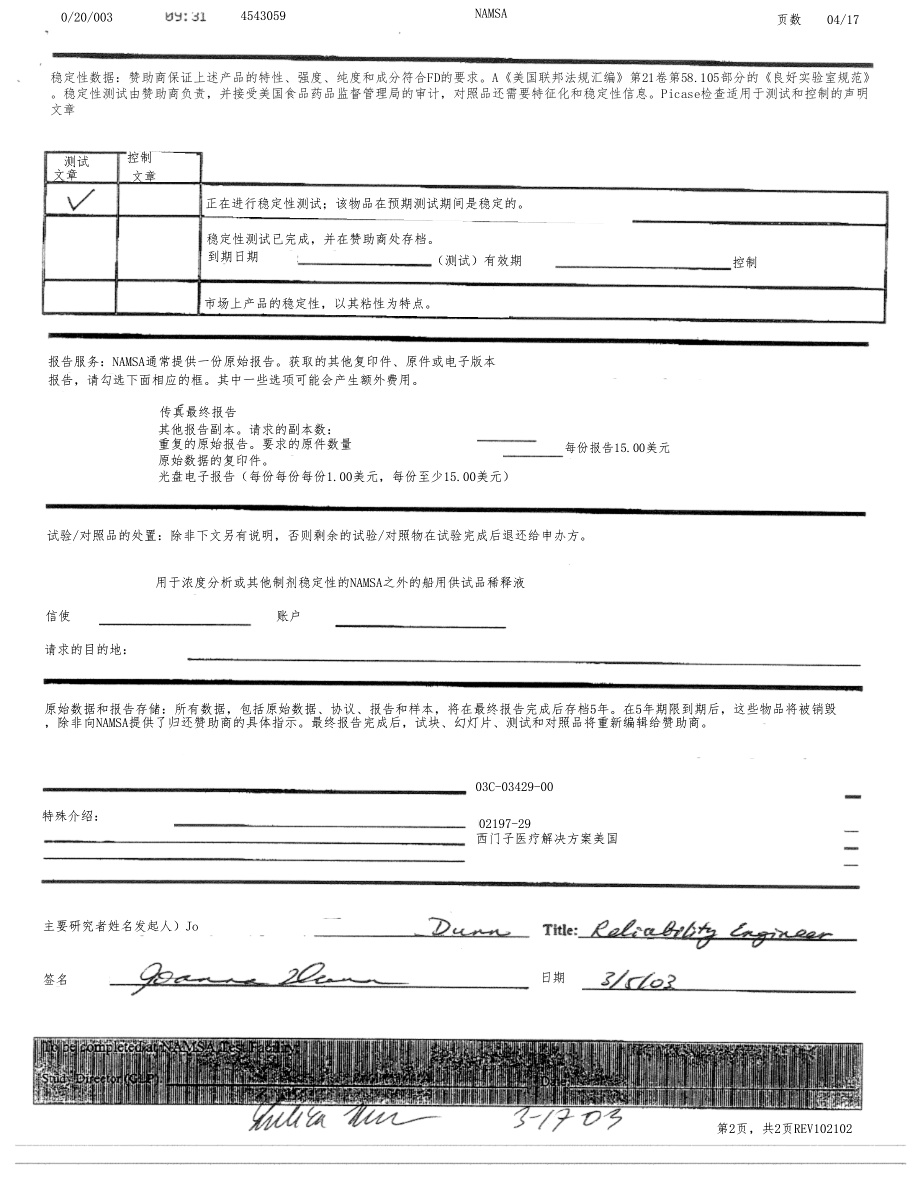 0/20/003 09:31 4543059 NAMSA 页数 04/17
稳定性数据：赞助商保证上述产品的特性、强度、纯度和成分符合FD的要求。A《美国联邦法规汇编》第21卷第58.105部分的《良好实验室规范》
。稳定性测试由赞助商负责，并接受美国食品药品监督管理局的审计，对照品还需要特征化和稳定性信息。Picase检查适用于测试和控制的声明
文章
测试 控制
文章 文章
正在进行稳定性测试；该物品在预期测试期间是稳定的。
稳定性测试已完成，并在赞助商处存档。
到期日期 （测试）有效期 控制
市场上产品的稳定性，以其粘性为特点。
报告服务：NAMSA通常提供一份原始报告。获取的其他复印件、原件或电子版本
报告，请勾选下面相应的框。其中一些选项可能会产生额外费用。
传真最终报告
其他报告副本。请求的副本数：
重复的原始报告。要求的原件数量 每份报告15.00美元
原始数据的复印件。
光盘电子报告（每份每份每份1.00美元，每份至少15.00美元）
试验/对照品的处置：除非下文另有说明，否则剩余的试验/对照物在试验完成后退还给申办方。
用于浓度分析或其他制剂稳定性的NAMSA之外的船用供试品稀释液
信使 账户
请求的目的地：
原始数据和报告存储：所有数据，包括原始数据、协议、报告和样本，将在最终报告完成后存档5年。在5年期限到期后，这些物品将被销毁
，除非向NAMSA提供了归还赞助商的具体指示。最终报告完成后，试块、幻灯片、测试和对照品将重新编辑给赞助商。
03C-03429-00
特殊介绍：
02197-29
西门子医疗解决方案美国
主要研究者姓名发起人）Jo Dunn Title: Reliability Engineer
签名 Joanna Dunn 日期 3/5/03
To be completed at NAMSA Test Facility:
Study Director (GLP): Date:
3-17-03
第2页，共2页REV102102